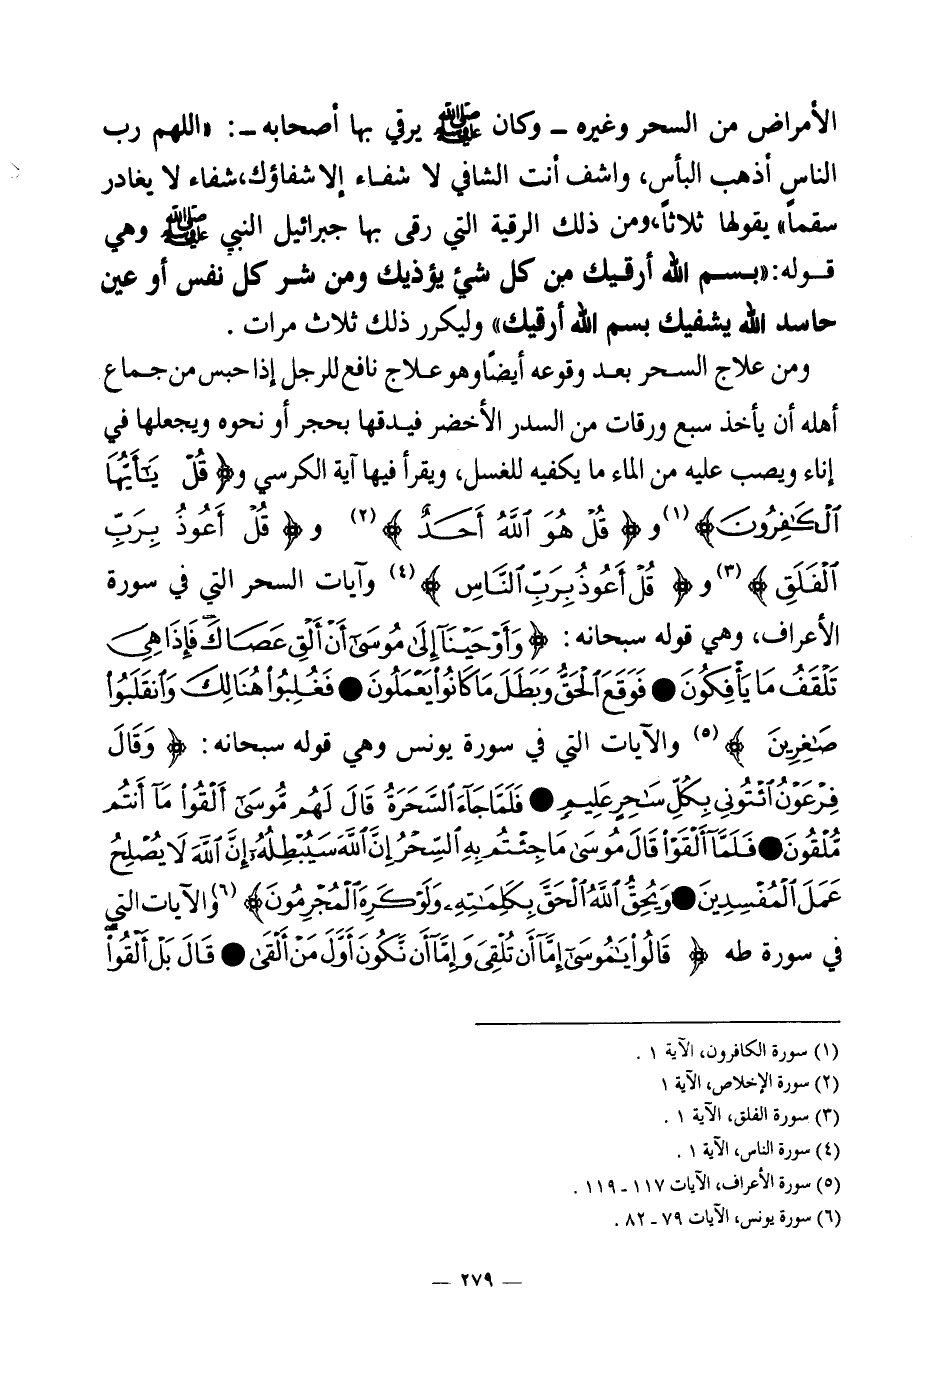 الأمراض من السحر وغيره ـ وكان ﷺ يرقي بها أصحابه ـ: «اللهم رب
الناس أذهب البأس، واشف أنت الشافي لا شفاء إلا شفاؤك،شفاء لا يغادر
سقماً» يقولها ثلاثاً،ومن ذلك الرقية التي رقى بها جبرائيل النبي ﷺ وهي
قوله:«بسم الله أرقيك من كل شئ يؤذيك ومن شر كل نفس أو عين
حاسد الله يشفيك بسم الله أرقيك» وليكرر ذلك ثلاث مرات .
ومن علاج السحر بعد وقوعه أيضًا وهو علاج نافع للرجل إذا حبس من جماع
أهله أن يأخذ سبع ورقات من السدر الأخضر فيدقها بحجر أو نحوه ويجعلها في
إناء ويصب عليه من الماء ما يكفيه للغسل، ويقرأ فيها آية الكرسي و﴿ قُلْ يَـٰٓأَيُّهَا
ٱلْكَـٰفِرُونَ﴾(١) و ﴿ قُلْ هُوَ ٱللَّهُ أَحَدٌ ﴾(٢) و ﴿ قُلْ أَعُوذُ بِرَبِّ
ٱلْفَلَقِ ﴾(٣) و ﴿ قُلْ أَعُوذُ بِرَبِّ ٱلنَّاسِ ﴾(٤) وآيات السحر التي في سورة
الأعراف، وهي قوله سبحانه: ﴿ وَأَوْحَيْنَآ إِلَىٰ مُوسَىٰٓ أَنْ أَلْقِ عَصَاكَ فَإِذَا هِىَ
تَلْقَفُ مَا يَأْفِكُونَ ● فَوَقَعَ ٱلْحَقُّ وَبَطَلَ مَا كَانُوا۟ يَعْمَلُونَ ● فَغُلِبُوا۟ هُنَالِكَ وَٱنقَلَبُوا۟
صَـٰغِرِينَ ﴾(٥) والآيات التي في سورة يونس وهي قوله سبحانه: ﴿ وَقَالَ
فِرْعَوْنُ ٱئْتُونِى بِكُلِّ سَـٰحِرٍ عَلِيمٍ ● فَلَمَّا جَآءَ ٱلسَّحَرَةُ قَالَ لَهُم مُّوسَىٰٓ أَلْقُوا۟ مَآ أَنتُم
مُّلْقُونَ ● فَلَمَّآ أَلْقَوْا۟ قَالَ مُوسَىٰ مَا جِئْتُم بِهِ ٱلسِّحْرُ إِنَّ ٱللَّهَ سَيُبْطِلُهُۥٓ إِنَّ ٱللَّهَ لَا يُصْلِحُ
عَمَلَ ٱلْمُفْسِدِينَ ● وَيُحِقُّ ٱللَّهُ ٱلْحَقَّ بِكَلِمَـٰتِهِۦ وَلَوْ كَرِهَ ٱلْمُجْرِمُونَ﴾(٦) والآيات التي
في سورة طه ﴿ قَالُوا۟ يَـٰمُوسَىٰٓ إِمَّآ أَن تُلْقِىَ وَإِمَّآ أَن نَّكُونَ أَوَّلَ مَنْ أَلْقَىٰ ● قَالَ بَلْ أَلْقُوا۟
(١) سورة الكافرون، الآية ١ .
(٢) سورة الإخلاص، الآية ١
(٣) سورة الفلق، الآية ١ .
(٤) سورة الناس، الآية ١ .
(٥) سورة الأعراف، الآيات ١١٧ ـ ١١٩ .
(٦) سورة يونس، الآيات ٧٩ ـ ٨٢ .
— ٢٧٩ —